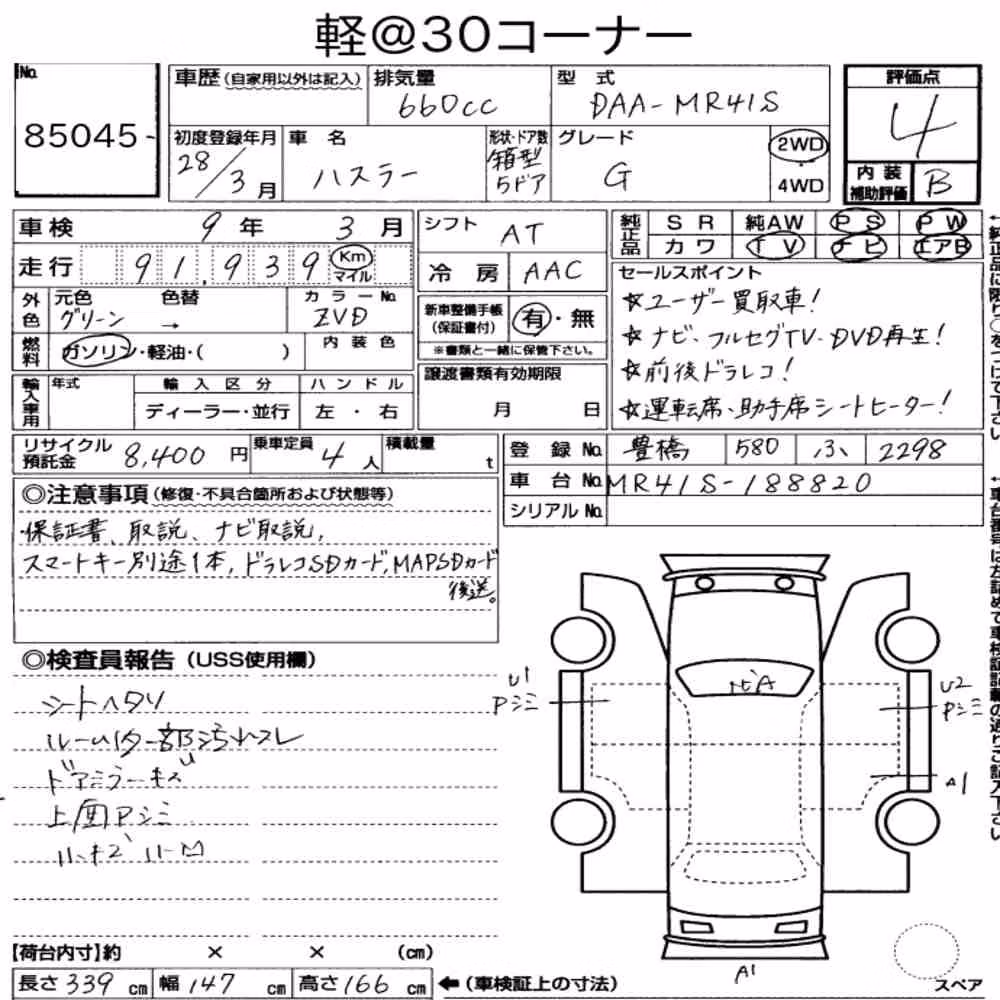 軽@30コーナー
No. 85045-
車歴(自家用以外は記入) 排気量 660cc 型式 DAA-MR41S
初度登録年月 28/3月 車名 ハスラー 形状・ドア数 箱型 5ドア グレード G 2WD・4WD
評価点 4
内装補助評価 B
車検 9年 3月
走行 91,939 Km マイル
外色 元色 グリーン 色替 → カラーNo. ZVD
燃料 ガソリン・軽油・( ) 内装色
輸入車用 年式 輸入区分 ディーラー・並行 ハンドル 左・右
シフト AT
冷房 AAC
新車整備手帳(保証書付) 有・無
※書類と一緒に保管下さい。
譲渡書類有効期限 月 日
純正品 SR 純AW PS PW
カワ TV ナビ エアB
セールスポイント
☆ユーザー買取車!
☆ナビ、フルセグTV・DVD再生!
☆前後ドラレコ!
☆運転席、助手席シートヒーター!
リサイクル預託金 8,400円 乗車定員 4人 積載量 t
登録No. 豊橋 580 ふ 2298
車台No. MR41S-188820
シリアルNo.
◎注意事項(修復・不具合箇所および状態等)
保証書、取説、ナビ取説,
スマートキー別途1本,ドラレコSDカード,MAPSDカード
後送。
◎検査員報告(USS使用欄)
シートヘタリ
汚れスレ
ドアミラーキズ
上面Pシミ
U1
Pシミ
U2
Pシミ
A1
A1
スペア
【荷台内寸】約 × × (cm)
長さ339cm 幅147cm 高さ166cm ←(車検証上の寸法)